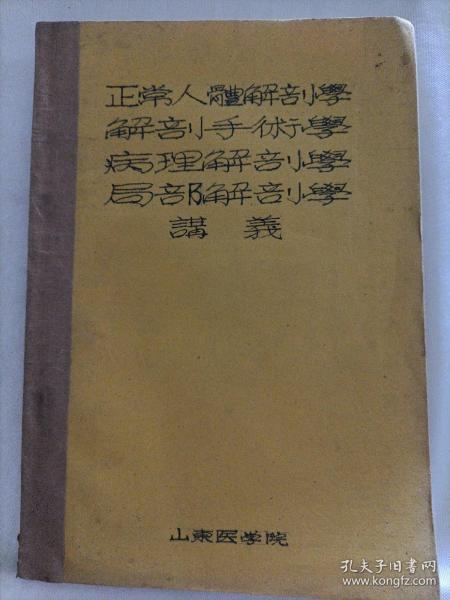 正常人體解剖學
解剖手術學
病理解剖學
局部解剖學
講義
山東医学院
孔夫子旧书网
www.kongfz.com